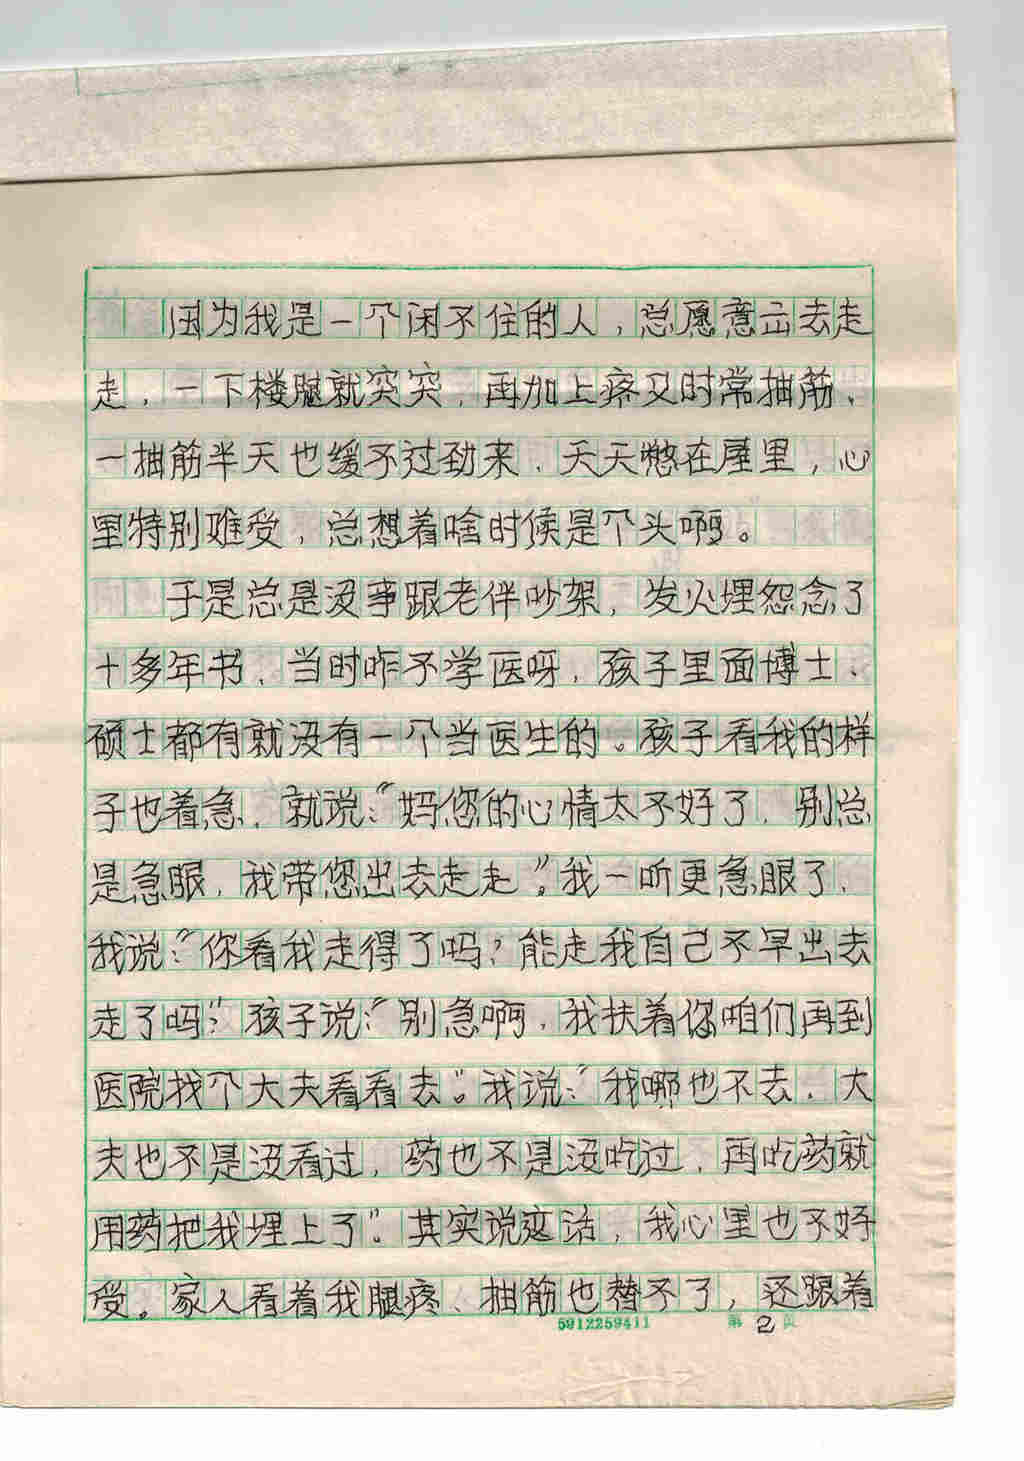 因为我是一个闲不住的人，总愿意出去走
走，一下楼腿就突突，再加上疼又时常抽筋、
一抽筋半天也缓不过劲来、天天憋在屋里，心
里特别难受，总想着啥时候是个头啊。
于是总是没事跟老伴吵架，发火埋怨念了
十多年书、当时咋不学医呀，孩子里面博士、
硕士都有就没有一个当医生的。孩子看我的样
子也着急，就说：“妈您的心情太不好了，别总
是急眼，我带您出去走走”。我一听更急眼了，
我说：“你看我走得了吗？能走我自己不早出去
走了吗”？孩子说：“别急啊，我扶着您咱们再到
医院找个大夫看看去”。我说：“我哪也不去，大
夫也不是没看过，药也不是没吃过，再吃药就
用药把我埋上了”。其实说这话，我心里也不好
受。家人看着我腿疼、抽筋也替不了，还跟着
5912259411 第2页